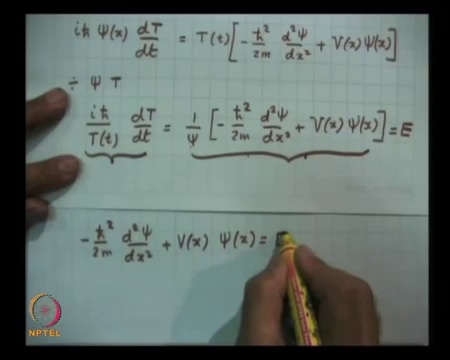 iħ Ψ(x) dT/dt = T(t) [ - ħ²/2m d²Ψ/dx² + V(x) Ψ(x) ]
÷ Ψ T
iħ/T(t) dT/dt = 1/Ψ [ - ħ²/2m d²Ψ/dx² + V(x) Ψ(x) ] = E
- ħ²/2m d²Ψ/dx² + V(x) Ψ(x) =
NPTEL